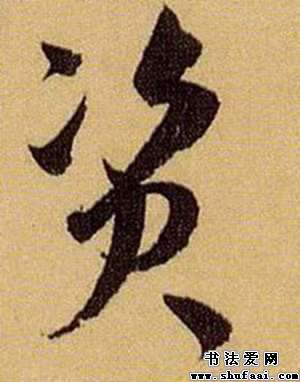 资
书法爱网
www.shufaai.com